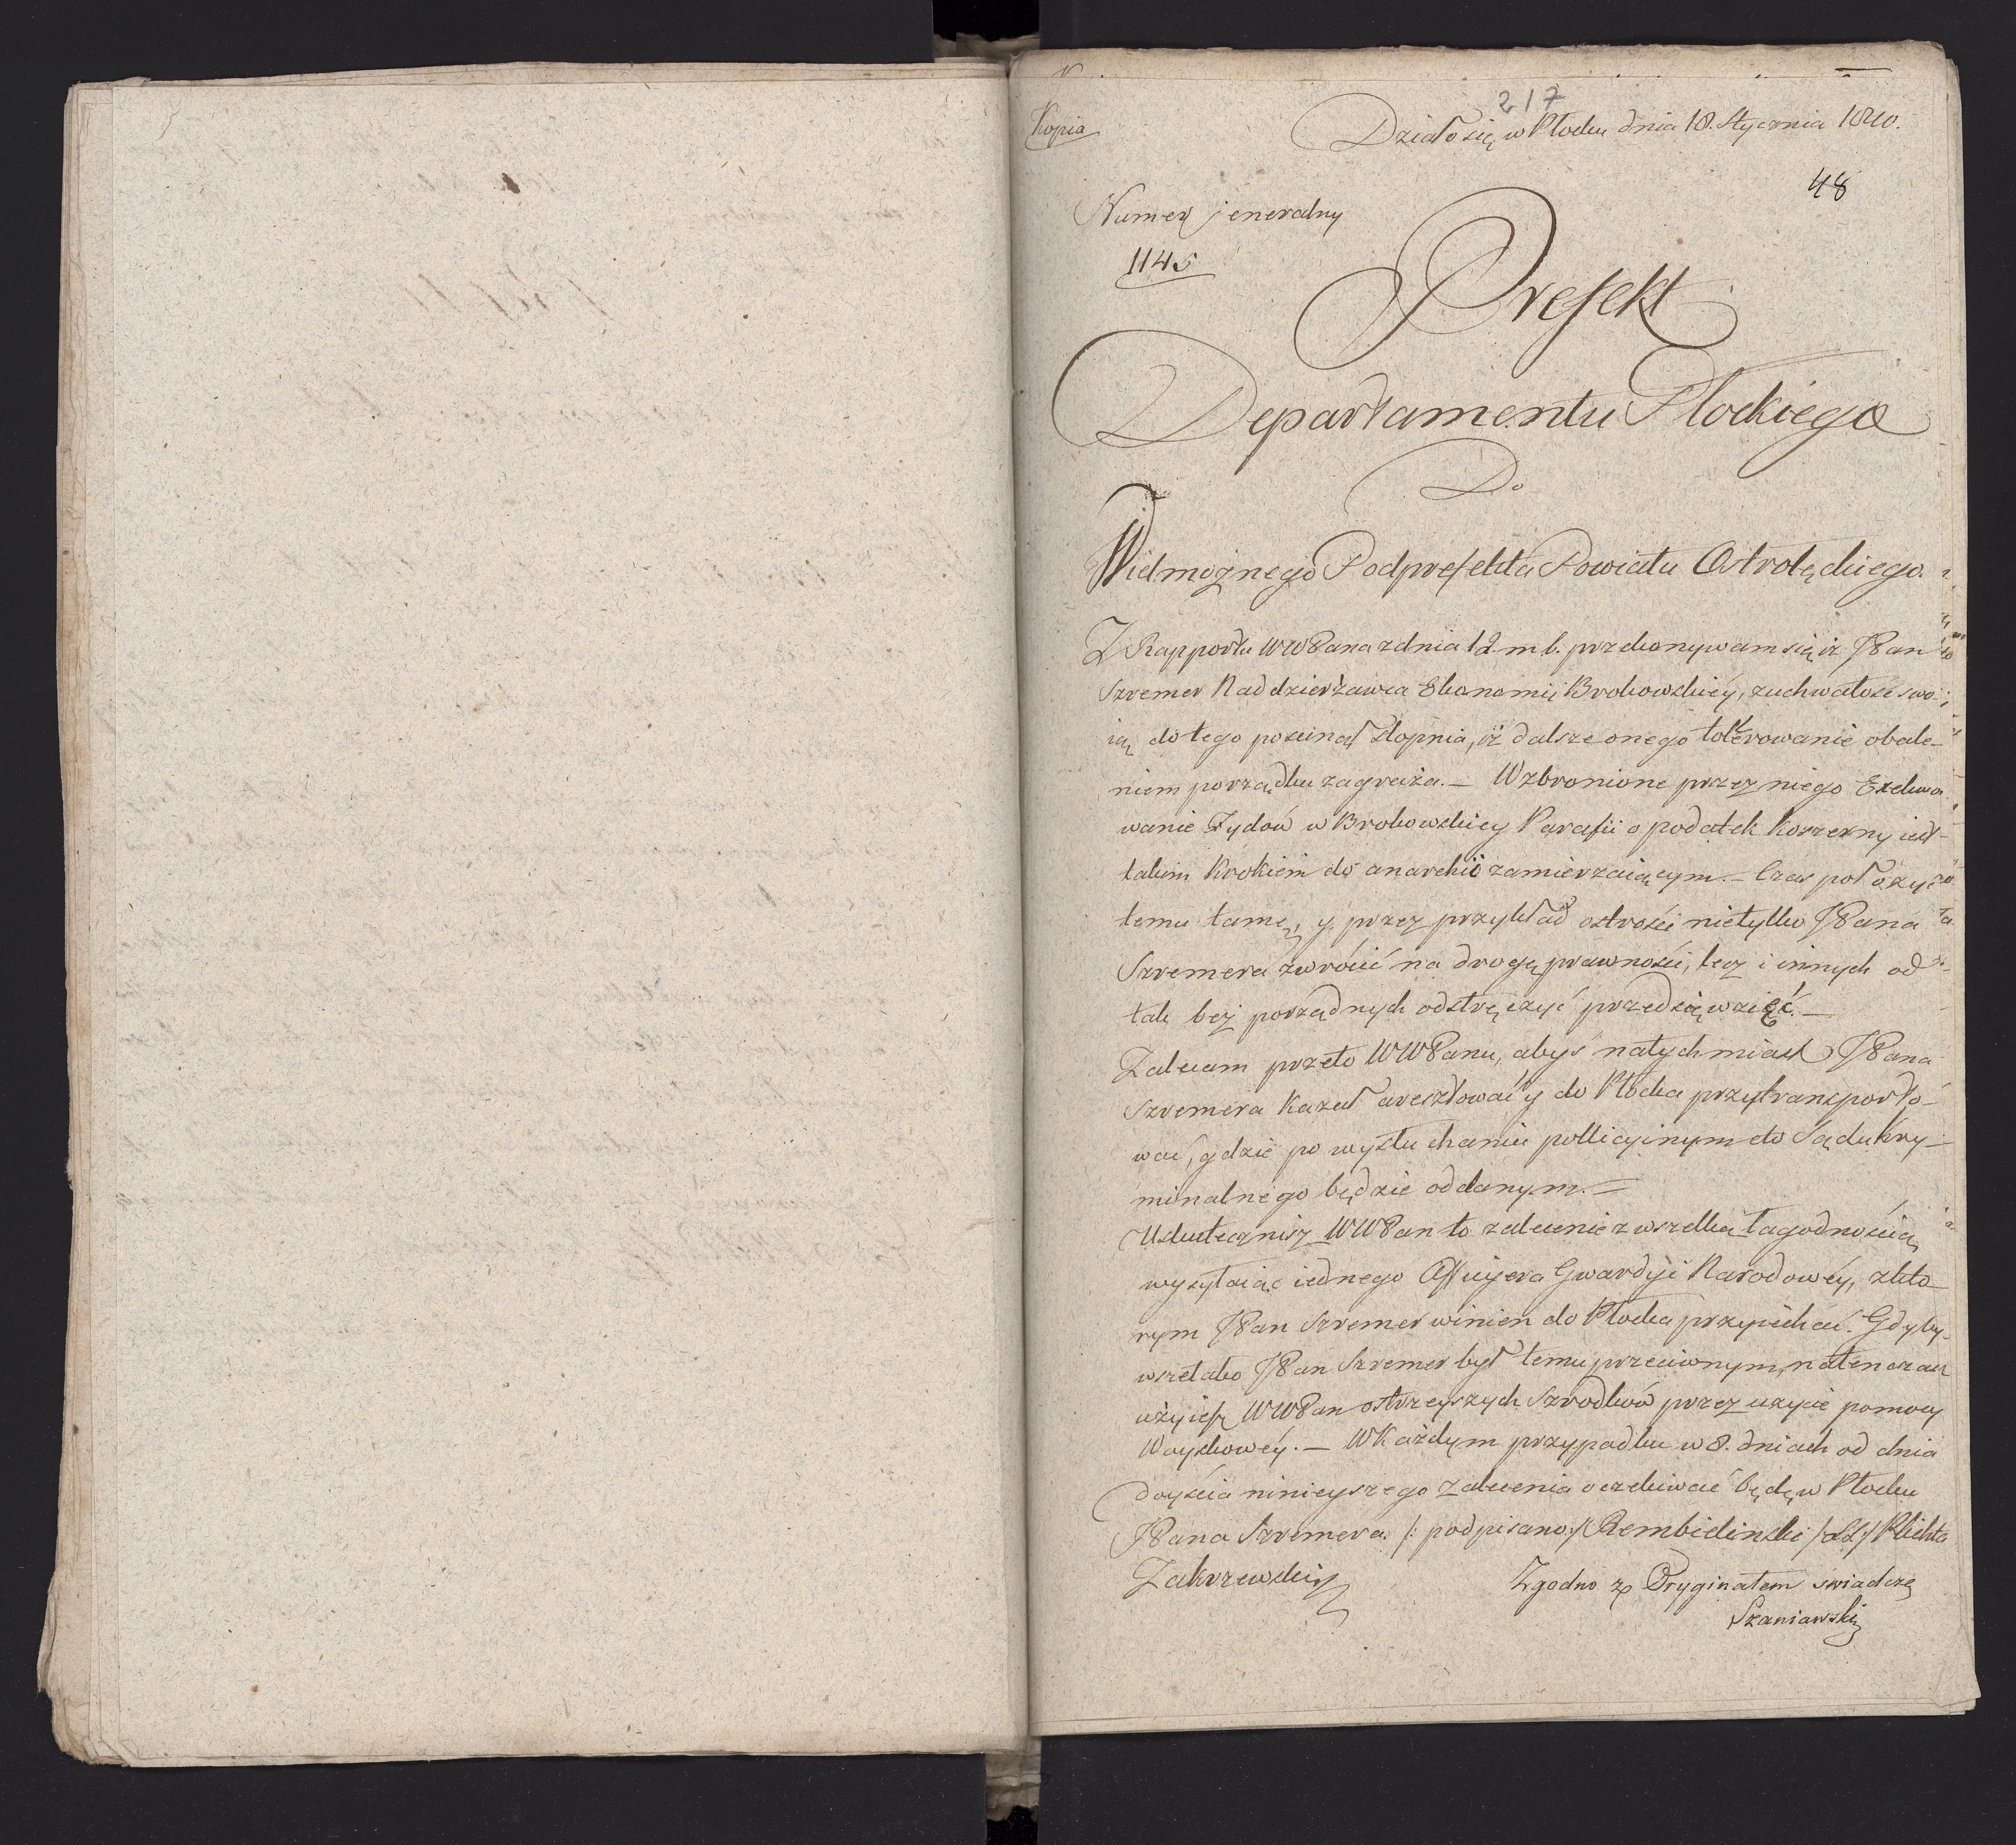 217
Kopia
Działo się w Płocku dnia 18. Stycznia 1810.
48
Numer jeneralny
1145
Prefekt
Departamentu Płockiego
Do
Wielmożnego Podprefekta Powiatu Ostrołęckiego.
Z Rapportu WWPana z dnia 12. m. b. przekonywam się iż JPan
Szremer Naddzierżawca Ekonomii Brokowskiéy, zuchwałość swo-
ią do tego posunął stopnia, iż dalsze onego tolerowanie obale-
niem porządku zagraża. — Wzbronione przez niego Exekwo-
wanie Żydów w Brokowskiey Parafii o podatek koszerny iest
takim krokiem do anarchii zamierzaiącym. — Czas położyć
temu tamę, y przez przykład ostrości nietylko JPana
Szremera zwrócić na drogę prawności, lecz i innych od
tak bez porządnych odstręczyć przedsięwzięć. —
Zalecam przeto WWPanu, abyś natychmiast JPana
Szremera kazał aresztować y do Płocka przytransporto-
wać, gdzie po wysłuchaniu pollicyinym do Sądu kry-
minalnego będzie oddanym. =
Uskutecznisz WWPan to zalecenie z wszelką łagodnością
wysyłaiąc iednego Officyera Gwardyi Narodowéy, z któ-
rym JPan Szremer winien do Płocka przyiechać. Gdyby
wszelako JPan Szremer był temu przeciwnym, natenczas
użyiesz WWPan ostrzeyszych szrodków przez użycie pomocy
Woyskowéy. — W każdym przypadku w 8. dniach od dnia
doyścia ninieyszego zalecenia oczekiwać będę w Płocku
JPana Szremera. /: podpisano :/ Rembielinski /LS/ Plichta
Zakrzewski
Zgodno z Oryginałem swiadczę
Szaniawski